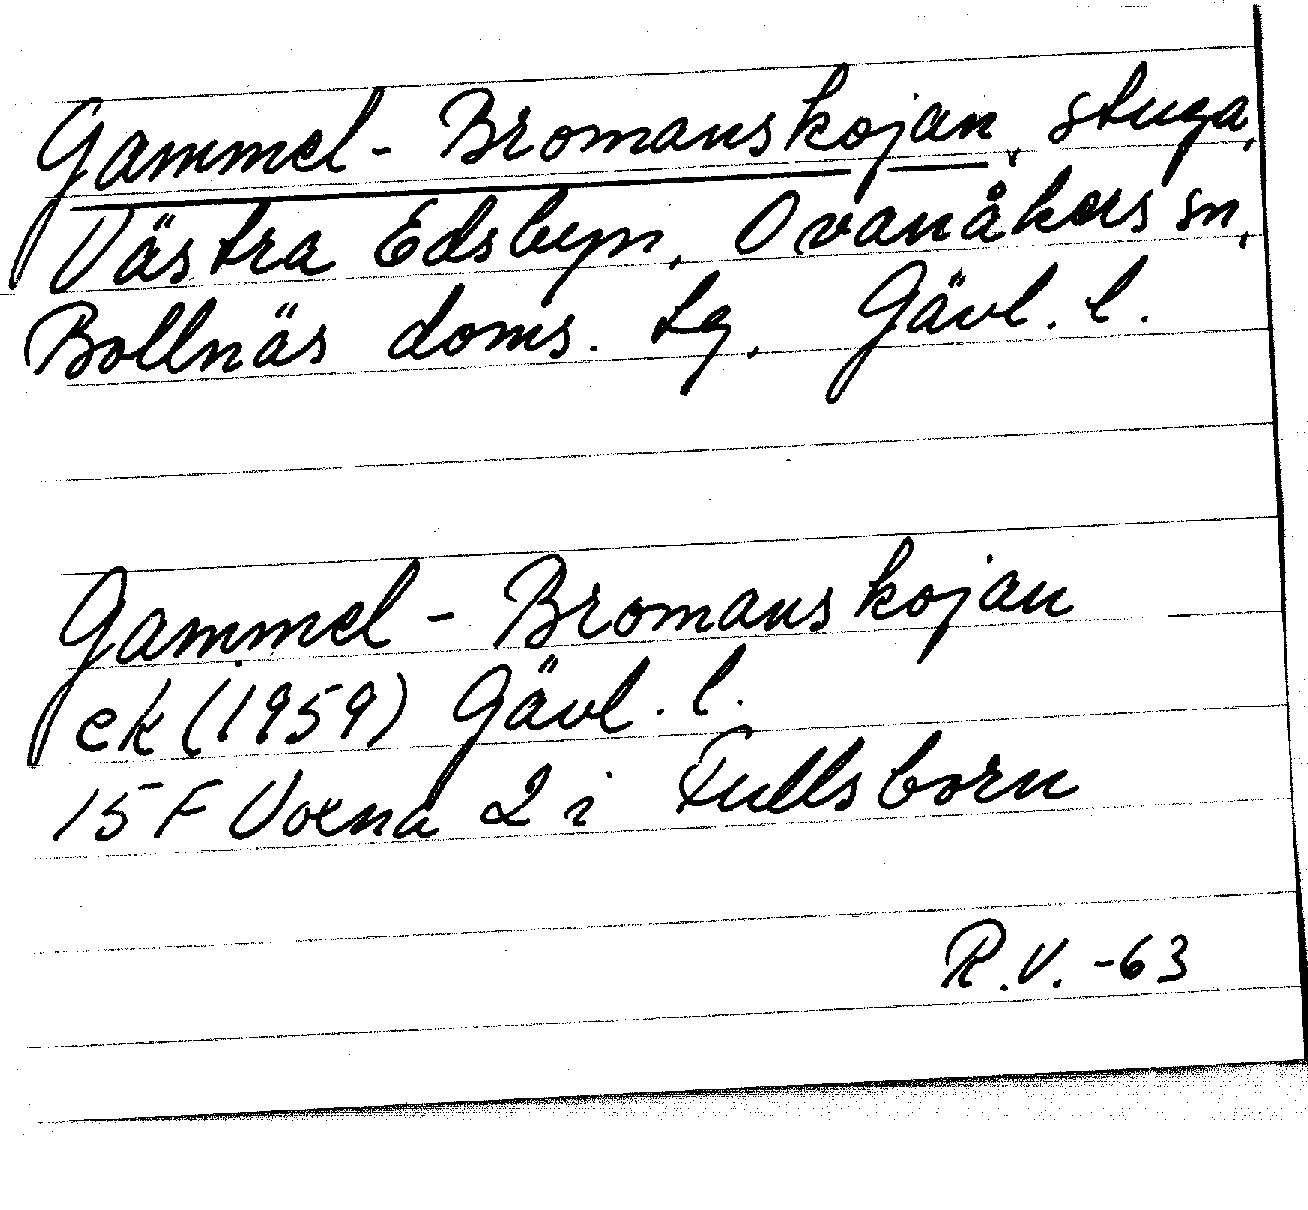 Gammel-Bromanskojan, stuga,
Västra Edsbyn, Ovanåkers sn,
Bollnäs doms. tg, Gävl. l.
Gammel-Bromanskojan
ek (1959) Gävl. l.
15 F Voxna 2 i Fullsborn
R.V. -63